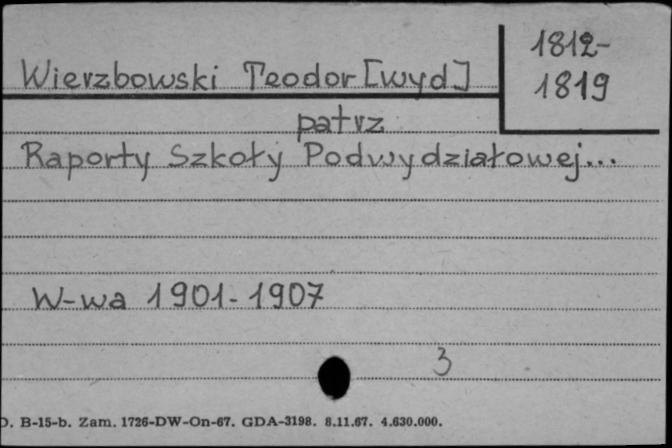 1812-
1819
Wierzbowski Teodor [wyd]
patrz
Raporty Szkoły Podwydziałowej...
W-wa 1901-1907
3
D. B-15-b. Zam. 1726-DW-On-67. GDA-3198. 8.11.67. 4.630.000.